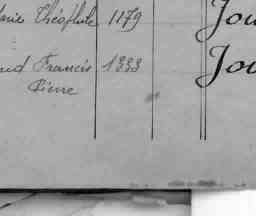 Théophile 1179 Jou
Francis 1333 Jou
Pierre